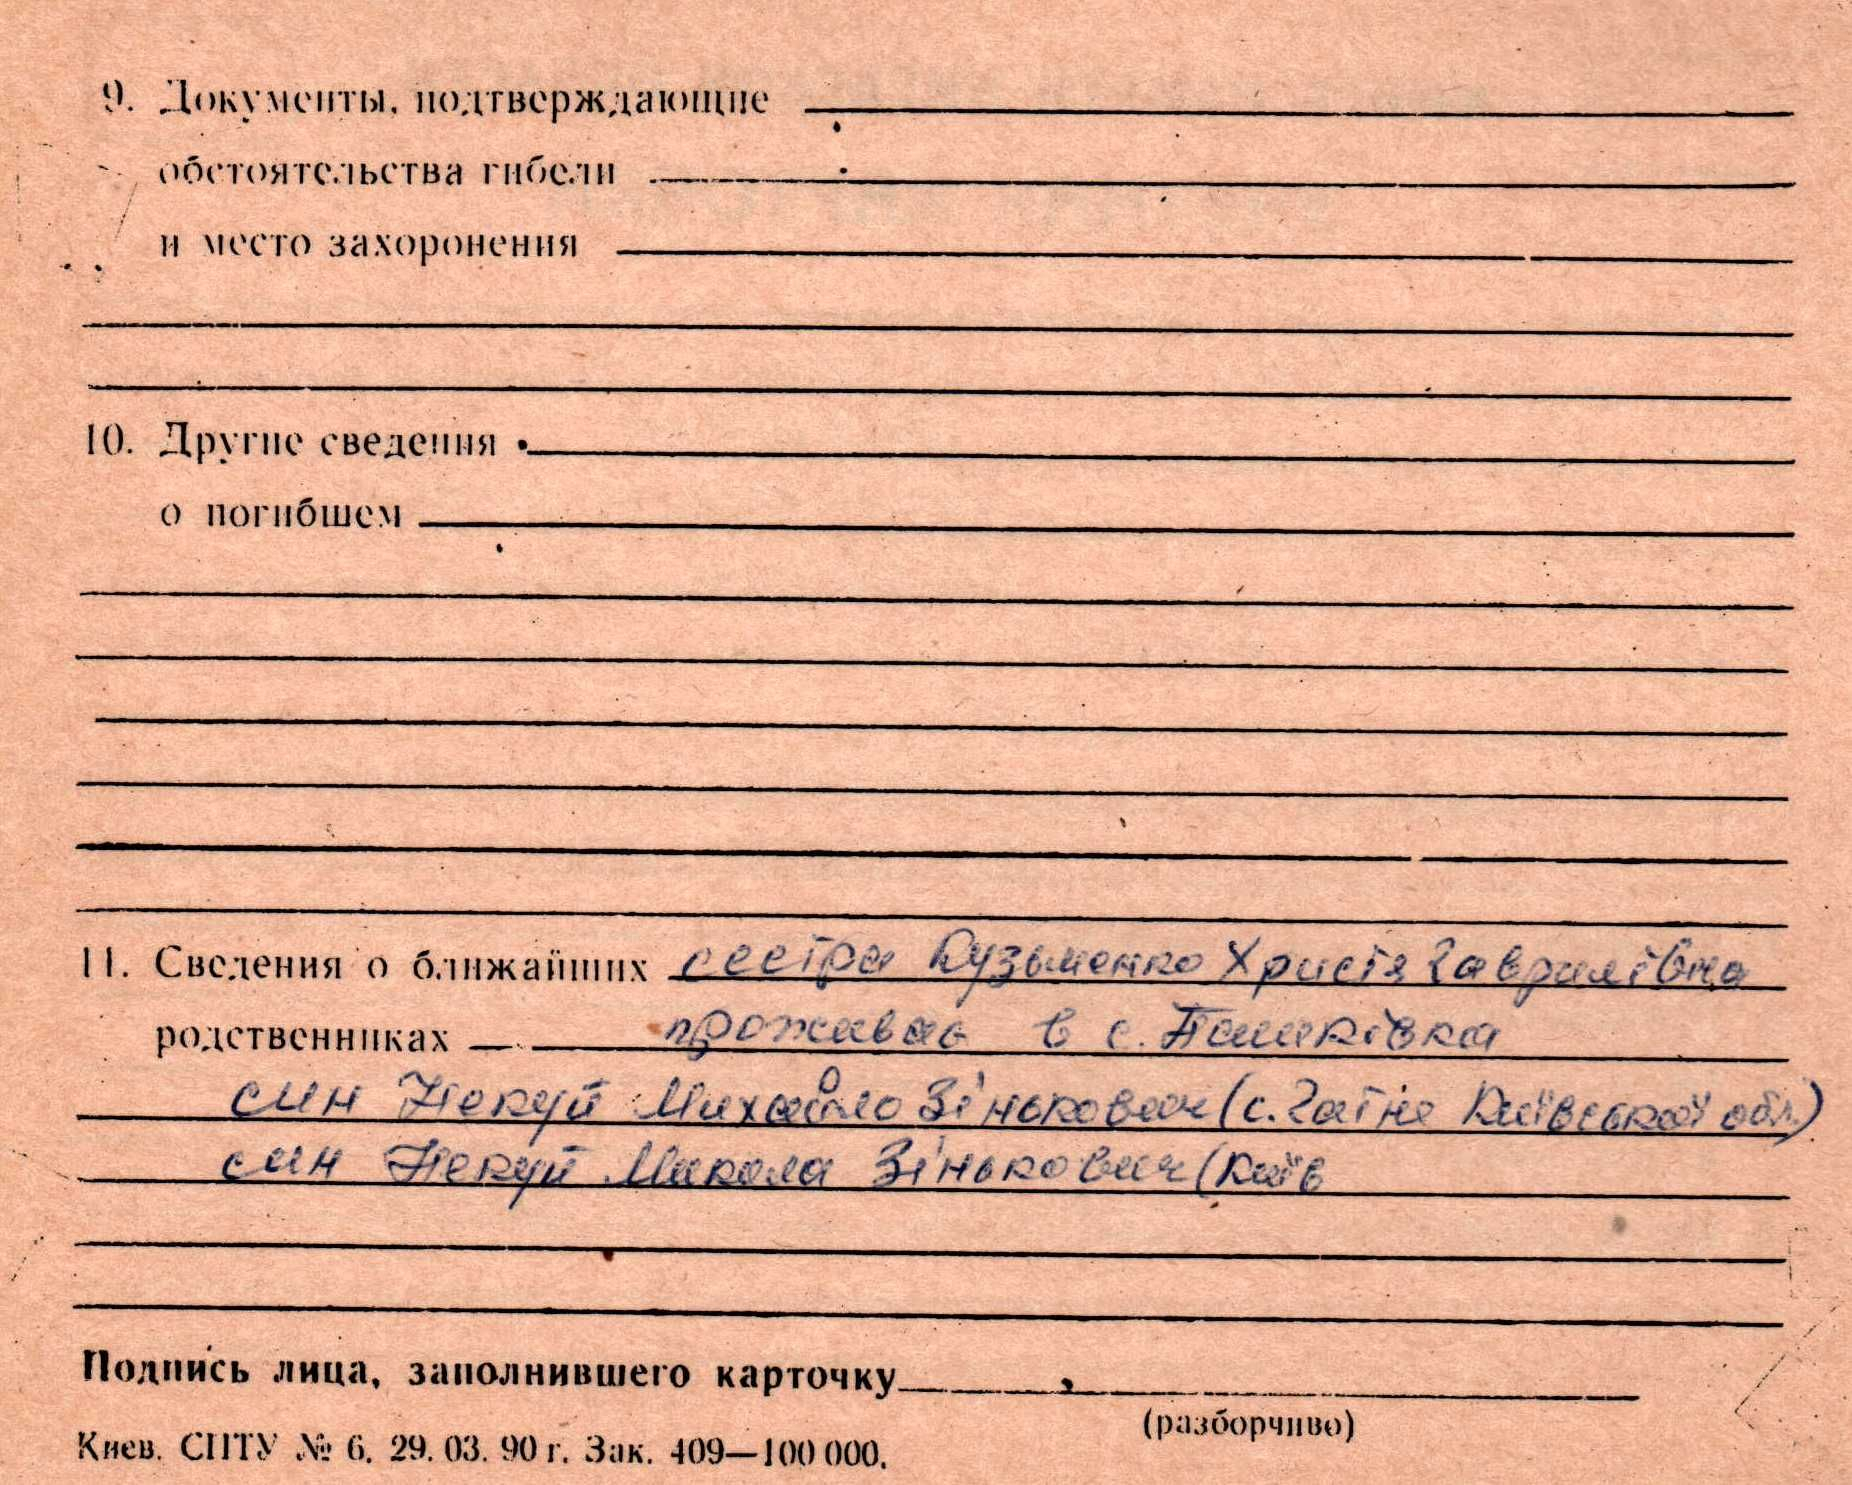 9. Документы, подтверждающие
обстоятельства гибели
и место захоронения
10. Другие сведения
о погибшем
11. Сведения о ближайших сестра Кузьменко Христя Гаврилівна
родственниках проживає в с. Пашківка
син Некуй Михайло Зінькович (с. Гатне Київської обл.)
син Некуй Микола Зінькович (Київ
Подпись лица, заполнившего карточку
(разборчиво)
Киев. СПТУ № 6. 29. 03. 90 г. Зак. 409—100 000.